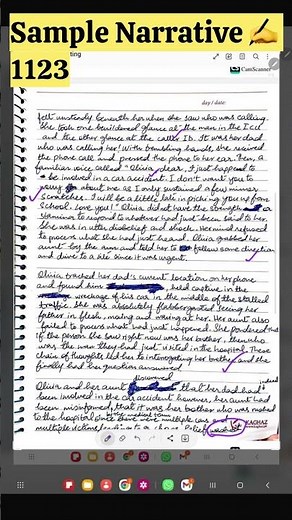 Sample Narrative ✍
1123
ting
CamScanner
day / date:
felt unsteady beneath her when she saw who was calling.
She took one bewildered glance at the man in the ICU
and the other glance at the caller ID. It was her dad
who was calling her! With trembling hands, she received
the phone call and pressed the phone to her ear. Then, a
familiar voice called "Olivia dear, I just happened to
be involved in a car accident. I don't want you to
worry about me as I only sustained a few minor
scratches. I will be a little late in picking you up from
School. Love you!" Olivia did not have the strength
stamina to respond to whatever had just been said to her.
She was in utter disbelief and shock. Her mind refused
to process what she had just heard. Olivia grabbed her
aunt by the arm and told her to follow some direction
and drive to a site since it was urgent.
Olivia tracked her dad's current location on her phone
and found him held captive in the
wreckage of his car in the middle of the stalled
traffic. She was absolutely flabbergasted seeing her
father in flesh, moving and waving at her. Her aunt also
failed to process what had just happened. She pondered that
if the person she saw right now was her brother, then who
was the man they had just visited in the hospital. These
chain of thoughts led her to interrogating her brother and she
finally had her question answered.
Olivia and her aunt discovered that her dad had indeed
been involved in the car accident however, her aunt had
been misinformed, that it was her brother who was rushed
to the hospital since there were multiple cars
multiple victims leading to a chaos. Police
KAGHAZ